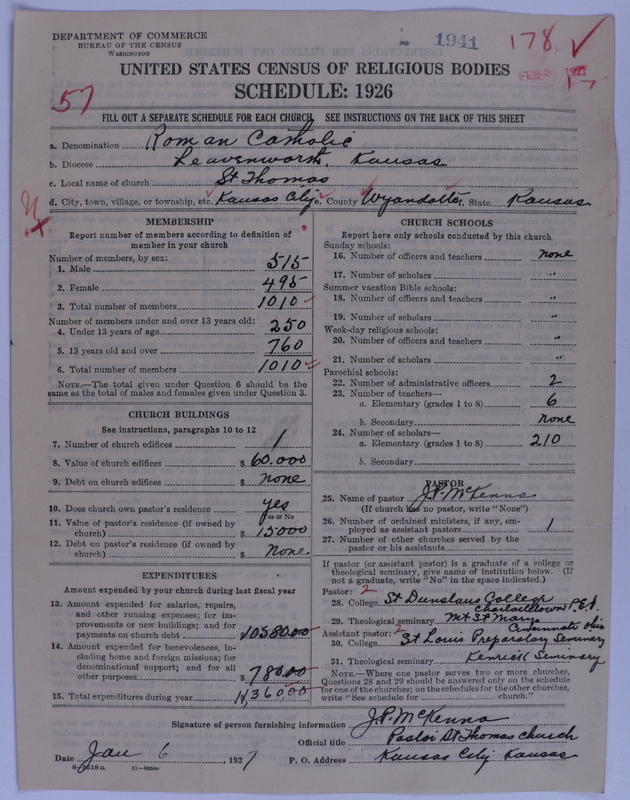 DEPARTMENT OF COMMERCE
BUREAU OF THE CENSUS
WASHINGTON
1941
178
UNITED STATES CENSUS OF RELIGIOUS BODIES
SCHEDULE: 1926
57
FILL OUT A SEPARATE SCHEDULE FOR EACH CHURCH. SEE INSTRUCTIONS ON THE BACK OF THIS SHEET
a. Denomination Roman Catholic
b. Diocese Leavenworth, Kansas
c. Local name of church St Thomas
d. City, town, village, or township, etc. Kansas City e. County Wyandotte f. State Kansas
MEMBERSHIP
Report number of members according to definition of
member in your church
Number of members, by sex:
1. Male 515
2. Female 495
3. Total number of members 1010
Number of members under and over 13 years old:
4. Under 13 years of age 250
5. 13 years old and over 760
6. Total number of members 1010
NOTE.—The total given under Question 6 should be the
same as the total of males and females given under Question 3.
CHURCH BUILDINGS
See instructions, paragraphs 10 to 12
7. Number of church edifices 1
8. Value of church edifices $ 60.000
9. Debt on church edifices $ none
10. Does church own pastor's residence yes
Yes or No
11. Value of pastor's residence (if owned by
church) $ 15000
12. Debt on pastor's residence (if owned by
church) $ None.
EXPENDITURES
Amount expended by your church during last fiscal year
13. Amount expended for salaries, repairs,
and other running expenses; for im-
provements or new buildings; and for
payments on church debt $ 10580.00
14. Amount expended for benevolences, in-
cluding home and foreign missions; for
denominational support; and for all
other purposes $ 780.00
15. Total expenditures during year 11,360.00
CHURCH SCHOOLS
Report here only schools conducted by this church
Sunday schools:
16. Number of officers and teachers none
17. Number of scholars "
Summer vacation Bible schools:
18. Number of officers and teachers "
19. Number of scholars "
Week-day religious schools:
20. Number of officers and teachers "
21. Number of scholars "
Parochial schools:
22. Number of administrative officers 2
23. Number of teachers—
a. Elementary (grades 1 to 8) 6
b. Secondary none
24. Number of scholars—
a. Elementary (grades 1 to 8) 210
b. Secondary
PASTOR
25. Name of pastor J.P. McKenna
(If church has no pastor, write "None")
26. Number of ordained ministers, if any, em-
ployed as assistant pastors 1
27. Number of other churches served by the
pastor or his assistants
If pastor (or assistant pastor) is a graduate of a college or
theological seminary, give name of institution below. (If
not a graduate, write "No" in the space indicated.)
Pastor: 2
28. College St Dunstans College
Charlottetown P.E.I.
29. Theological seminary Mt St Marys
Cincinnati Ohio
Assistant pastor: 2
30. College St Louis Preparatory Seminary
31. Theological seminary Kenrick Seminary
NOTE.—Where one pastor serves two or more churches,
Questions 28 and 29 should be answered only on the schedule
for one of the churches; on the schedules for the other churches,
write "See schedule for church."
Signature of person furnishing information J.P. McKenna
Official title Pastor St Thomas church
Date Jan 6, 1927 P. O. Address Kansas City Kansas
11—9054